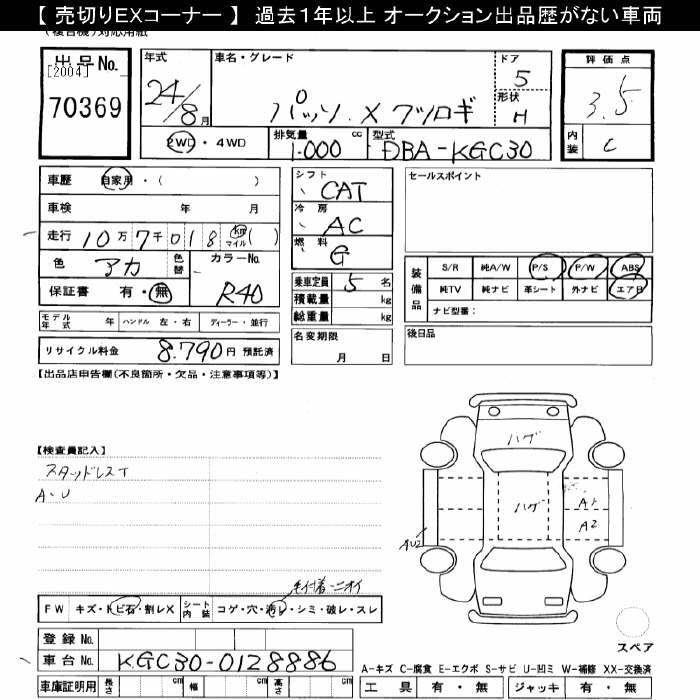 【 売切りEXコーナー 】 過去１年以上 オークション出品歴がない車両
(複合機)対応用紙
出品No.
[2004]
70369
年式
24/8月
車名・グレード
パッソ X クツロギ
ドア
5
形状
H
評価点
3.5
内装
C
2WD・4WD
排気量
1.000 cc
型式
DBA-KGC30
車歴
自家用・( )
車検 年 月
走行 10万7千018 km マイル ( )
色 アカ
色替
カラーNo.
R40
保証書 有・無
モデル年式 年
ハンドル 左・右
ディーラー・並行
リサイクル料金 8.790円 預託済
シフト
CAT
冷房
AC
燃料
G
乗車定員 5名
積載量 kg
総重量 kg
名変期限
月 日
セールスポイント
装備品
S/R 純A/W P/S P/W ABS
純TV 純ナビ 革シート 外ナビ エアB
ナビ型番:
後日品
【出品店申告欄(不良箇所・欠品・注意事項等)】
【検査員記入】
スタッドレスT
A・U
ハゲ
ハゲ
A1
A2
AU2
毛付着・ニオイ
FW キズ・トビ石・割レX
シート内装 コゲ・穴・汚レ・シミ・破レ・スレ
スペア
登録No.
車台No. KGC30-0128886
A-キズ C-腐食 E-エクボ S-サビ U-凹ミ W-補修 XX-交換済
車庫証明用 長さ cm 幅 cm 高さ cm
工具 有・無
ジャッキ 有・無